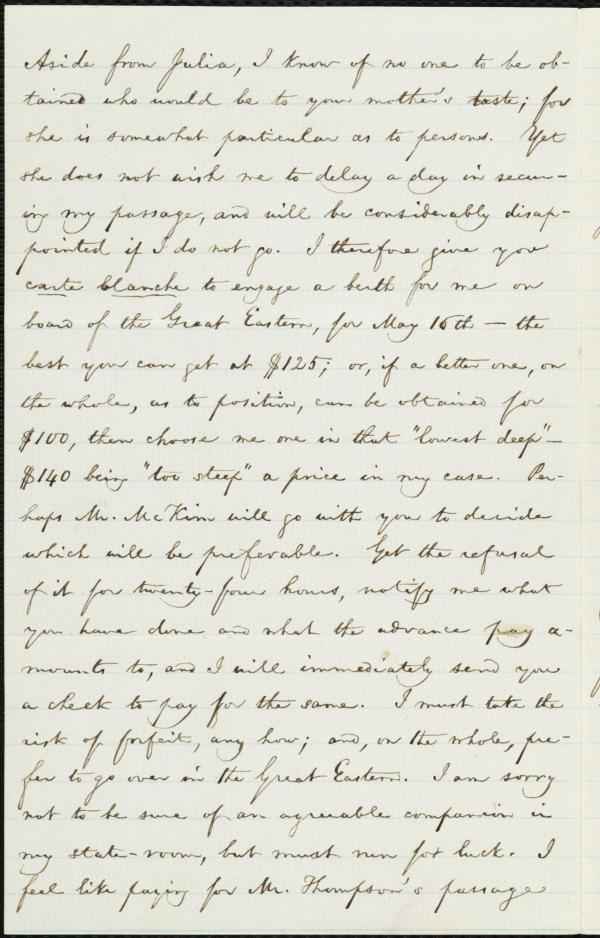 Aside from Julia, I know of no one to be ob-
tained who would be to your mother's taste; for
she is somewhat particular as to persons. Yet
she does not wish me to delay a day in secur-
ing my passage, and will be considerably disap-
pointed if I do not go. I therefore give you
carte blanche to engage a berth for me on
board of the Great Eastern, for May 16th — the
best you can get at $125; or, if a better one, on
the whole, as to position, can be obtained for
$100, then choose me one in that "lowest deep" —
$140 being "too steep" a price in my case. Per-
haps Mr. McKim will go with you to decide
which will be preferable. Get the refusal
of it for twenty-four hours, notify me what
you have done and what the advance pay a-
mounts to, and I will immediately send you
a check to pay for the same. I must take the
risk of forfeit, any how; and, on the whole, pre-
fer to go over in the Great Eastern. I am sorry
not to be sure of an agreeable companion in
my state-room, but must run for luck. I
feel like paying for Mr. Thompson's passage